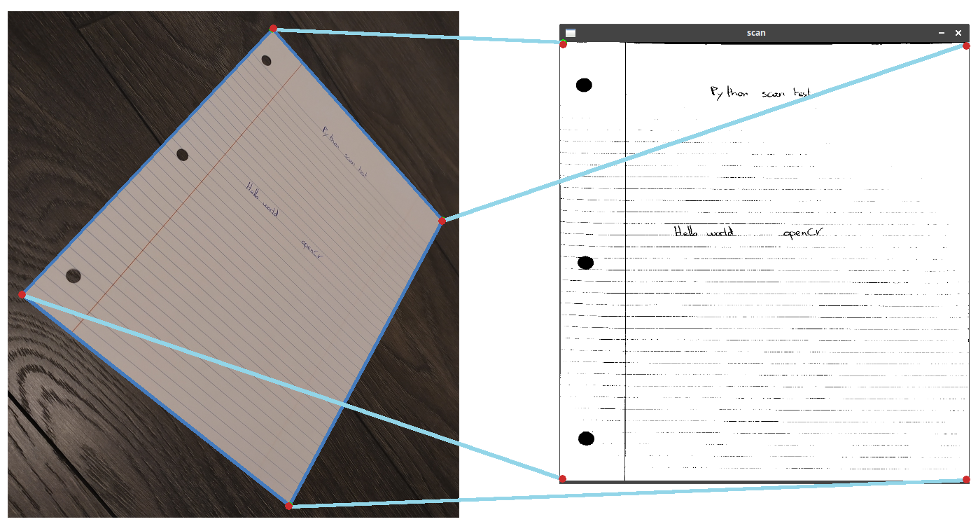 Python scan test
Hello world
openCV
scan
Python scan test
Hello world openCV